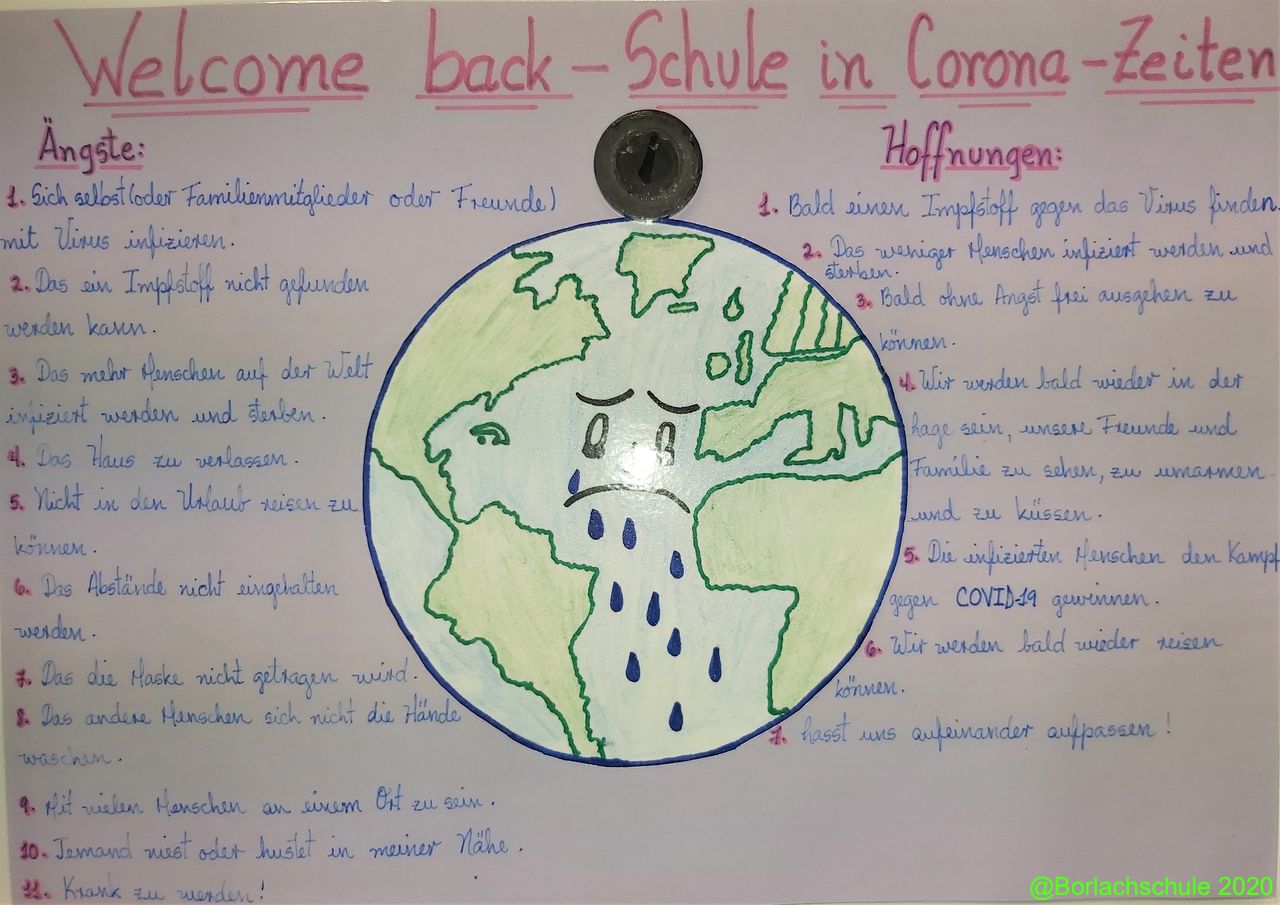 Welcome back - Schule in Corona-Zeiten
Ängste:
1. Sich selbst (oder Familienmitglieder oder Freunde)
mit Virus infizieren.
2. Das ein Impfstoff nicht gefunden
werden kann.
3. Das mehr Menschen auf der Welt
infiziert werden und sterben.
4. Das Haus zu verlassen.
5. Nicht in den Urlaub reisen zu
können.
6. Das Abstände nicht eingehalten
werden.
7. Das die Maske nicht getragen wird.
8. Das andere Menschen sich nicht die Hände
waschen.
9. Mit vielen Menschen an einem Ort zu sein.
10. Jemand niest oder hustet in meiner Nähe.
11. Krank zu werden!
Hoffnungen:
1. Bald einen Impfstoff gegen das Virus finden.
2. Das weniger Menschen infiziert werden und
sterben.
3. Bald ohne Angst frei ausgehen zu
können.
4. Wir werden bald wieder in der
Lage sein, unsere Freunde und
Familie zu sehen, zu umarmen
und zu küssen.
5. Die infizierten Menschen den Kampf
gegen COVID-19 gewinnen.
6. Wir werden bald wieder reisen
können.
7. Lasst uns aufeinander aufpassen!
@Borlachschule 2020